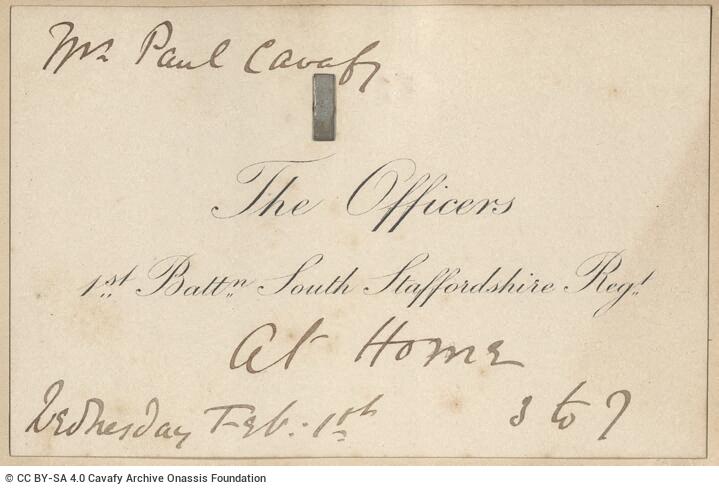 Mr Paul Cavafy
The Officers
1st Battn South Staffordshire Regt
At Home
Wednesday Feb: 1st 3 to 7
© CC BY-SA 4.0 Cavafy Archive Onassis Foundation